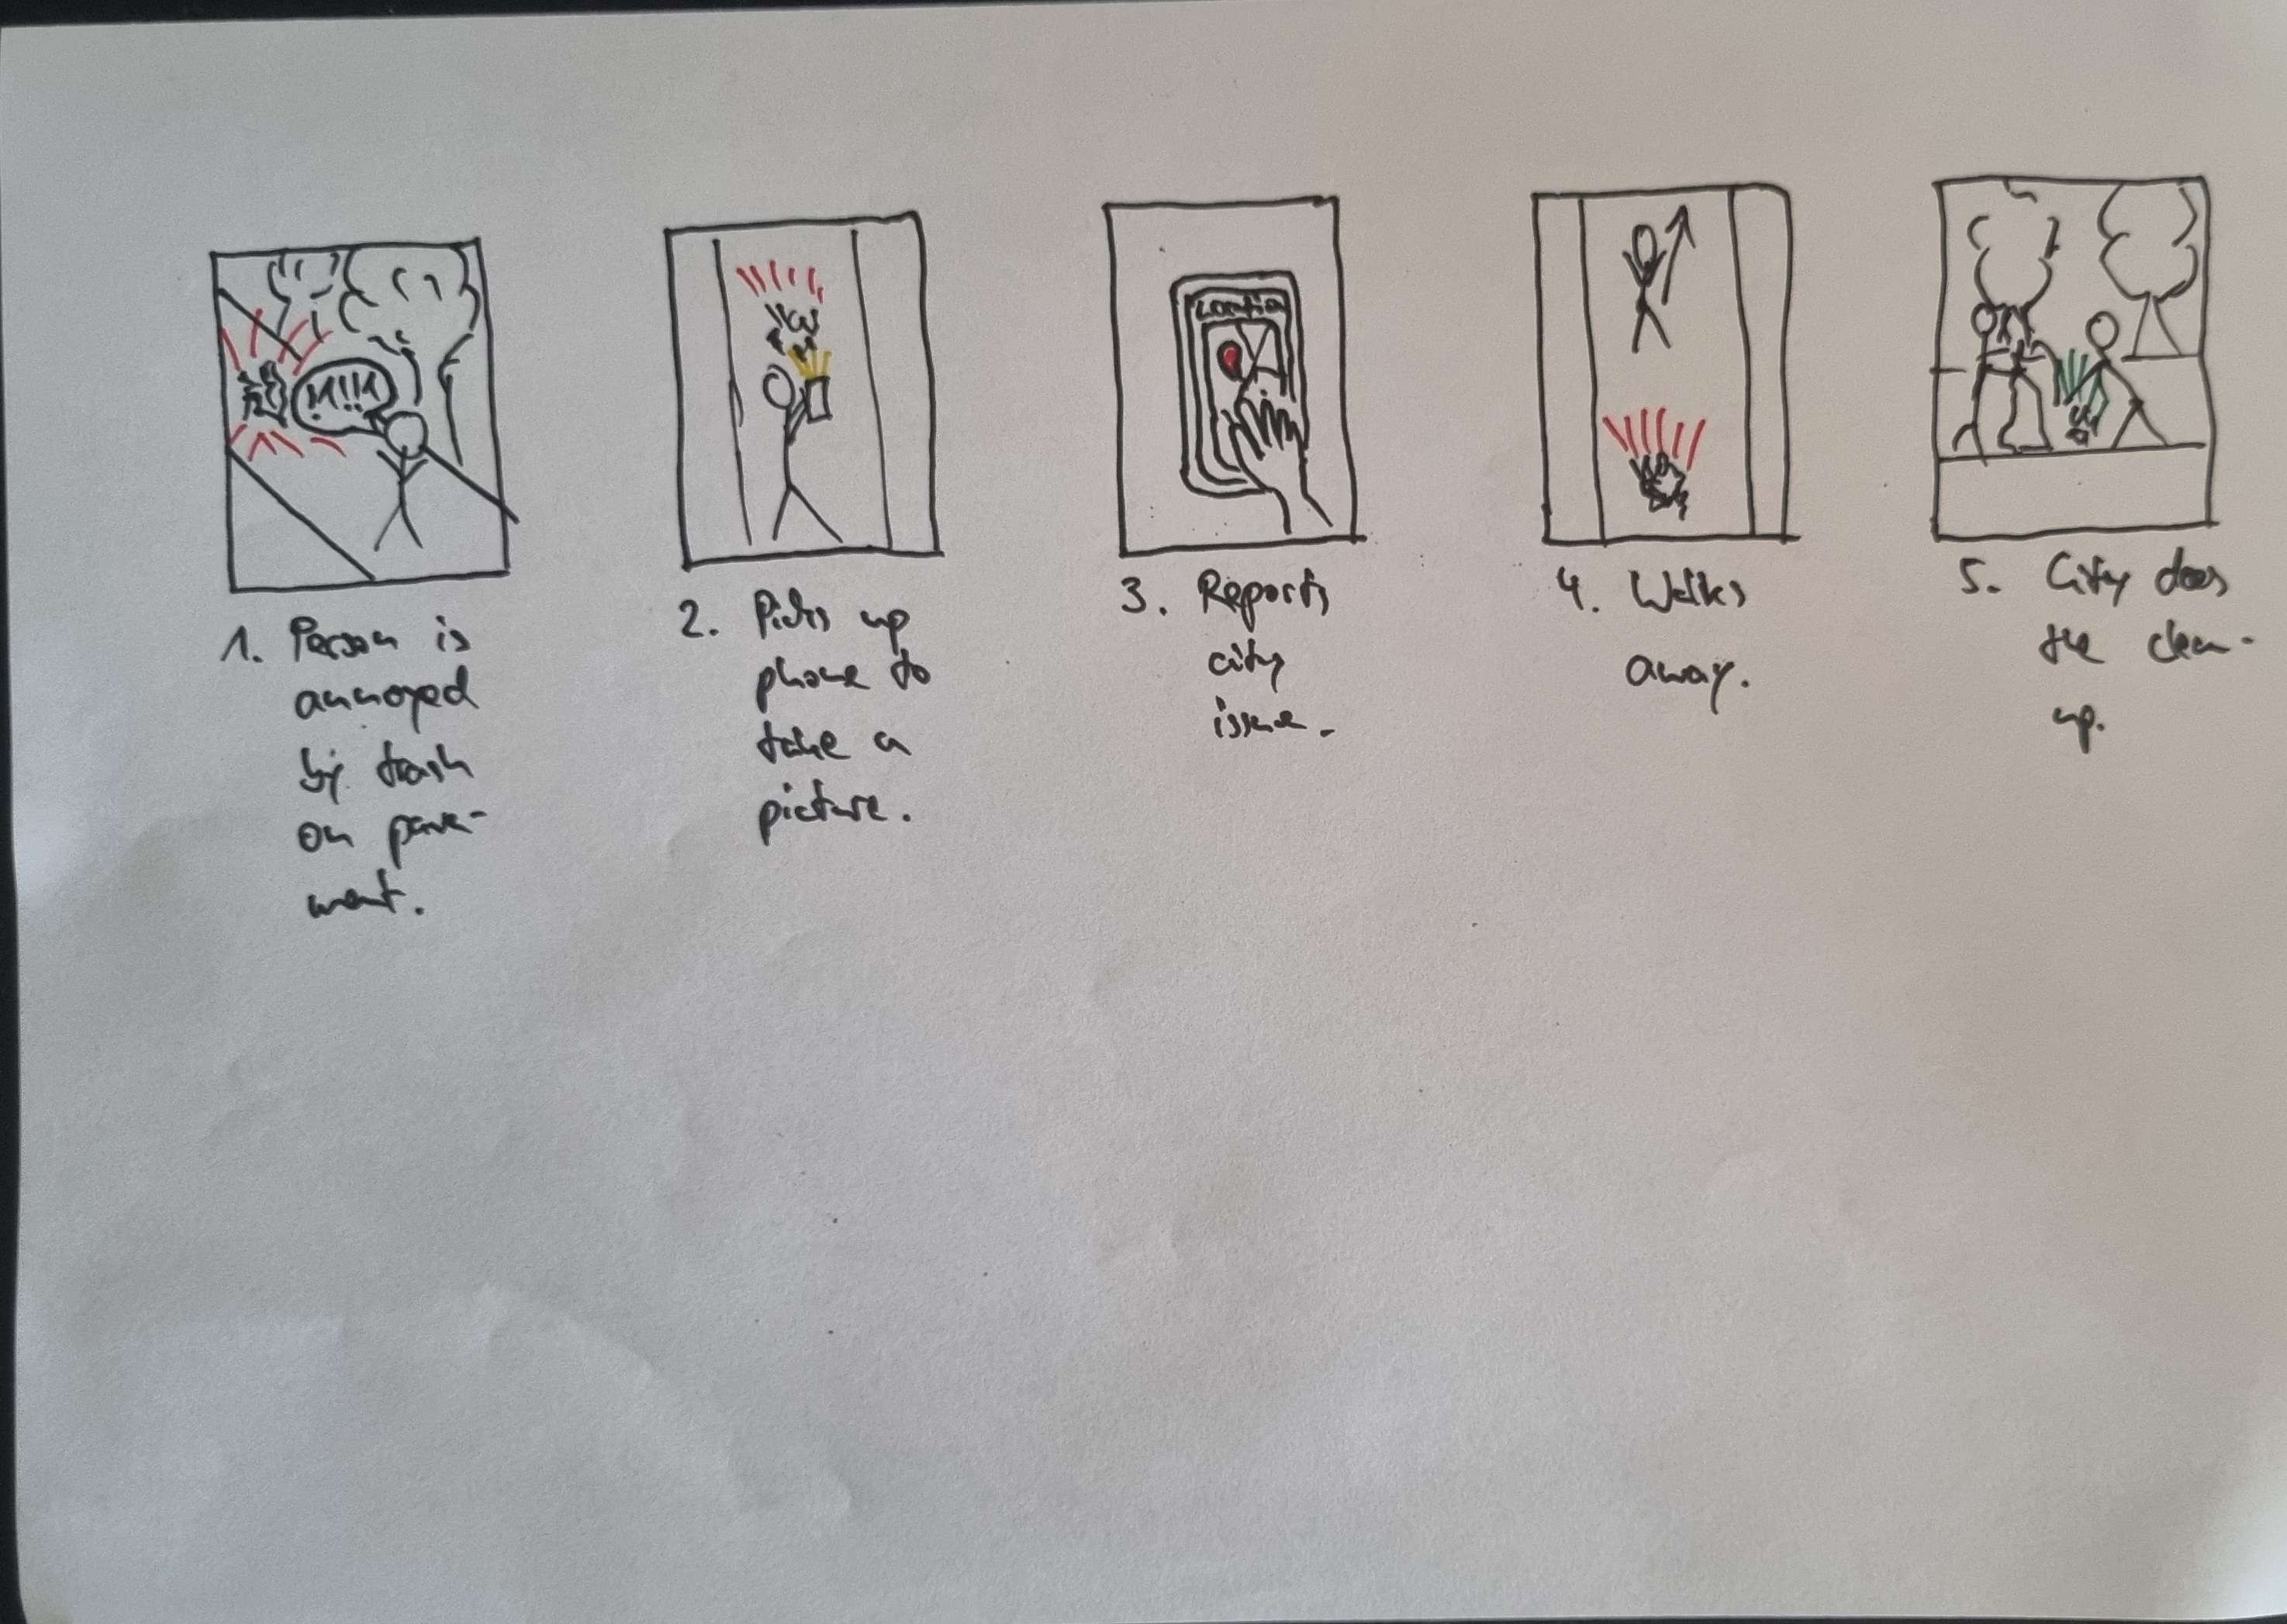 !!!!!
Location
1. Person is
annoyed
by trash
on pave-
ment.
2. Picks up
phone to
take a
picture.
3. Reports
city
issue.
4. Walks
away.
5. City does
the clean-
up.